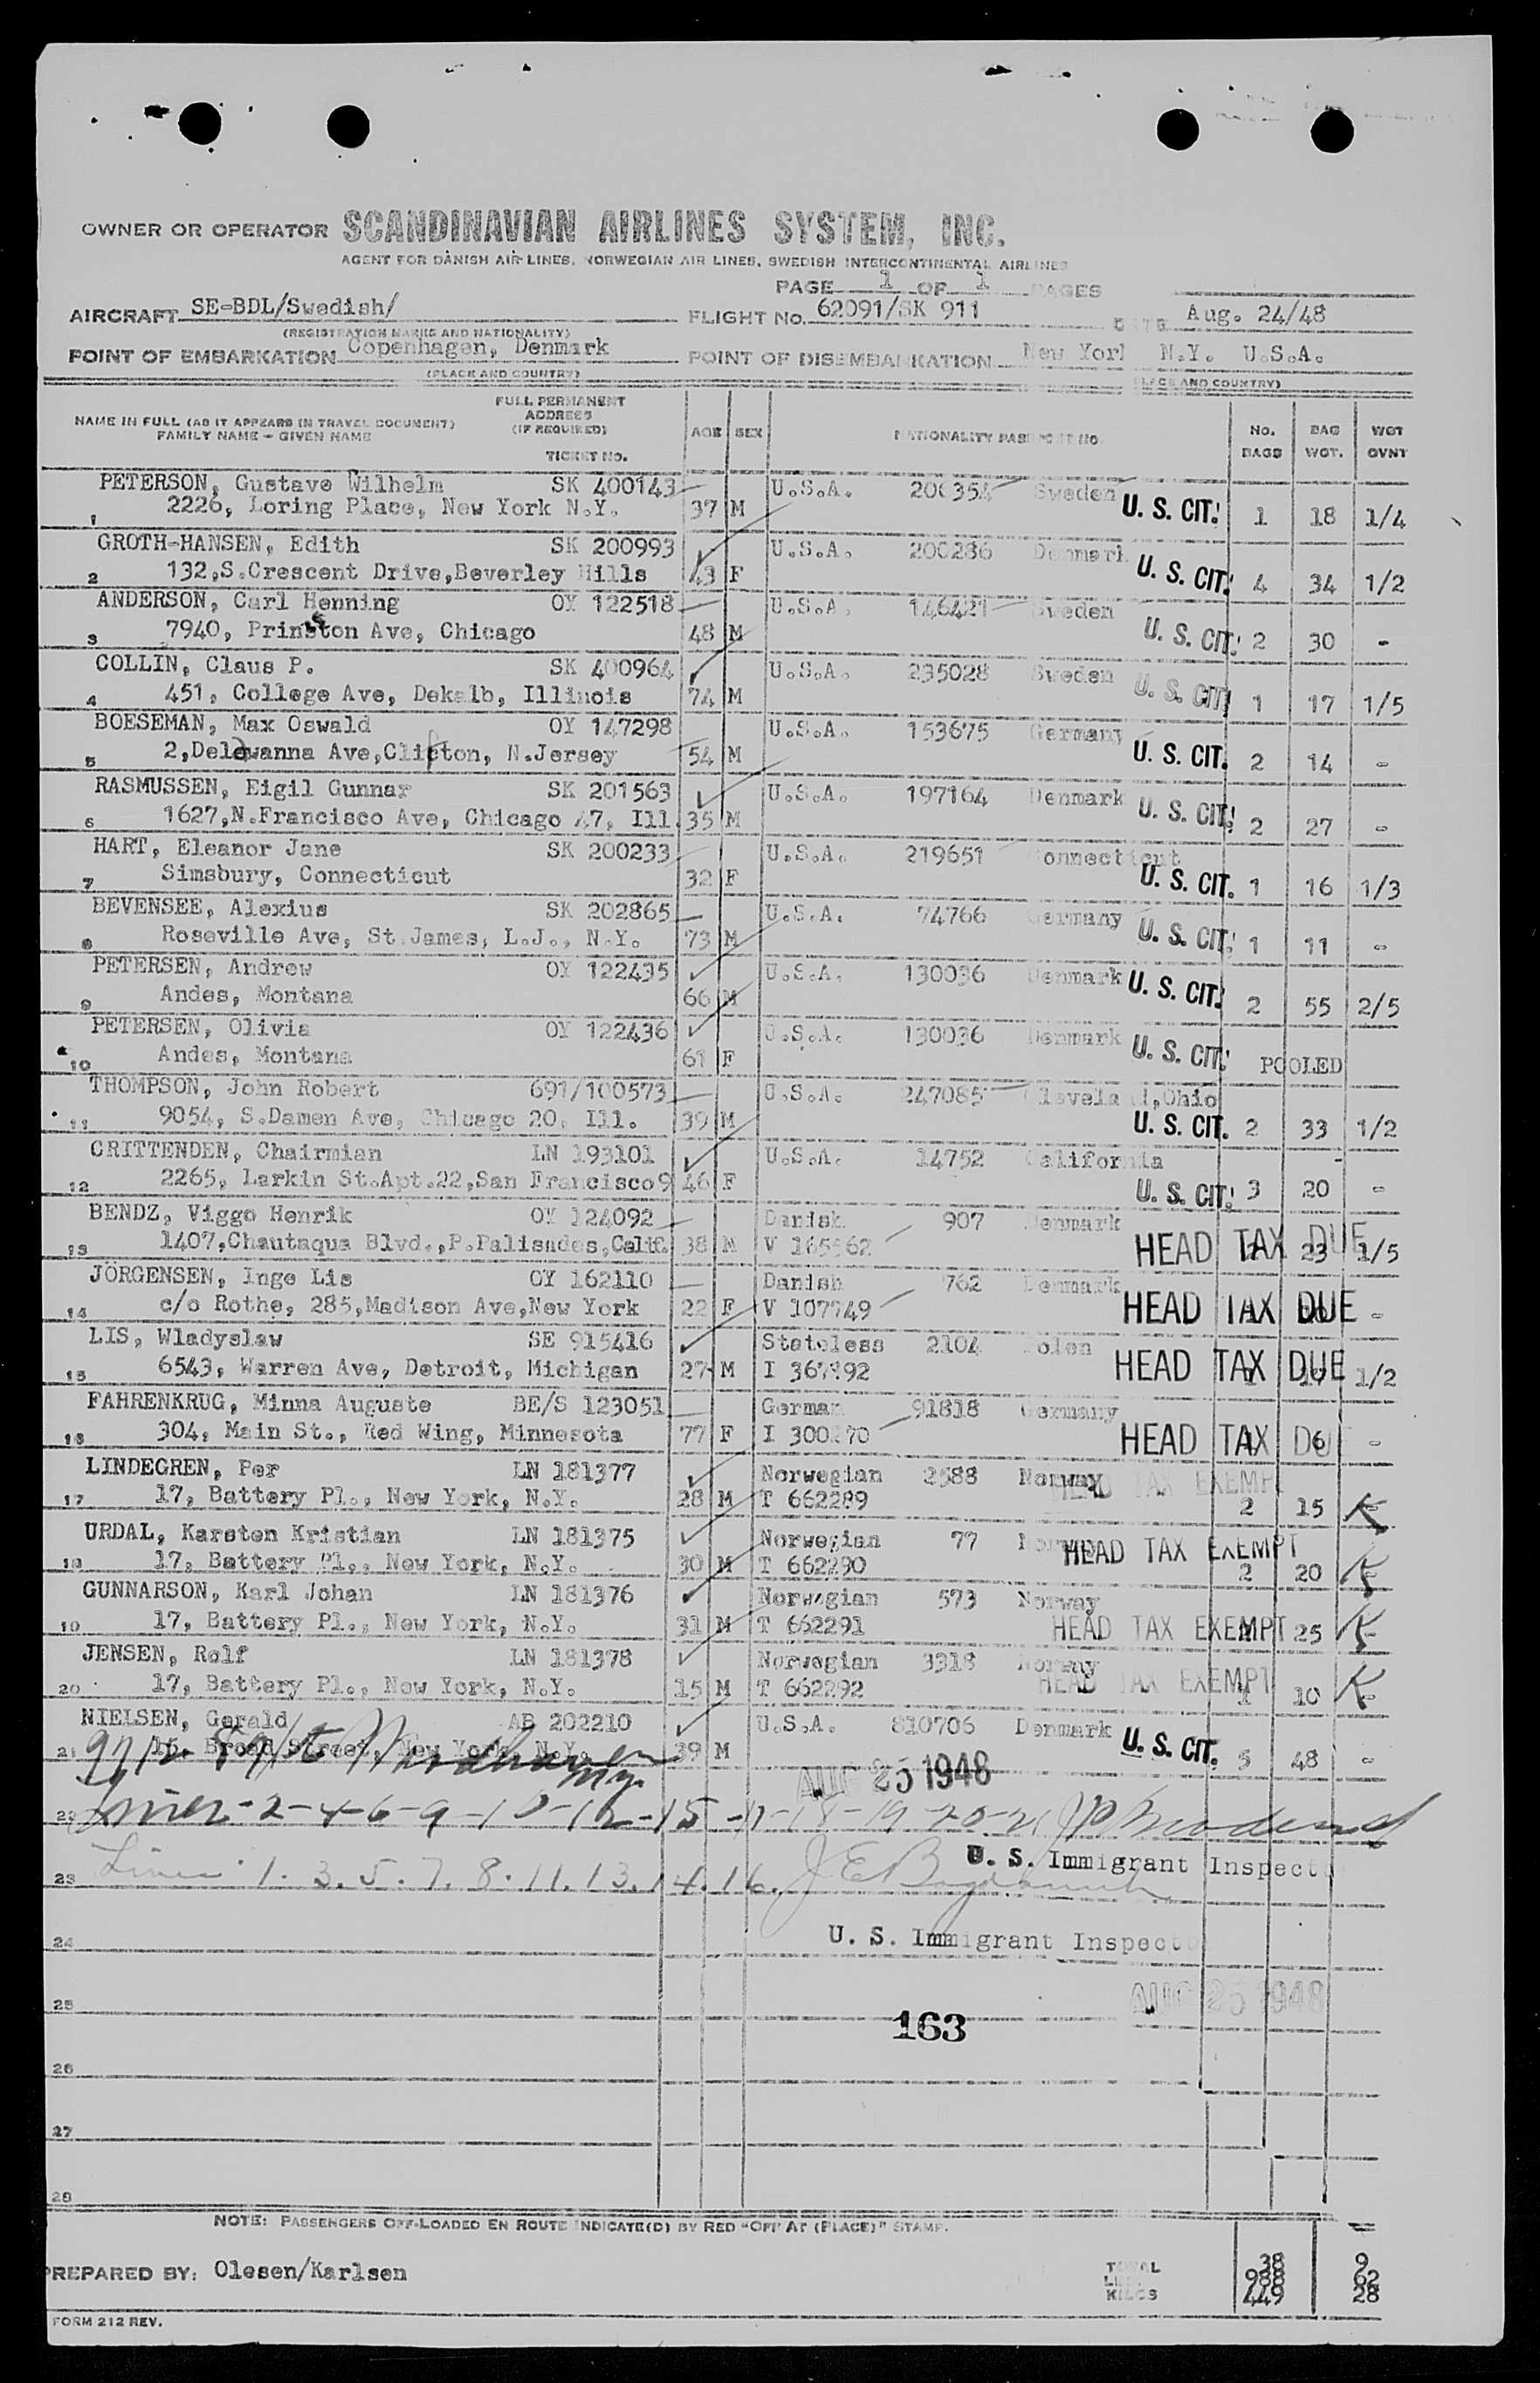 OWNER OR OPERATOR SCANDINAVIAN AIRLINES SYSTEM, INC.
AGENT FOR DANISH AIR LINES, NORWEGIAN AIR LINES, SWEDISH INTERCONTINENTAL AIRLINES
PAGE 1 OF 1 PAGES
AIRCRAFT SE-BDL/Swedish/ FLIGHT No. 62091/SK 911 DATE Aug. 24/48
(REGISTRATION MARKS AND NATIONALITY)
POINT OF EMBARKATION Copenhagen, Denmark POINT OF DISEMBARKATION New York N.Y. U.S.A.
(PLACE AND COUNTRY) (PLACE AND COUNTRY)
NAME IN FULL (AS IT APPEARS IN TRAVEL DOCUMENT) FAMILY NAME - GIVEN NAME FULL PERMANENT ADDRESS (IF REQUIRED) TICKET NO. AGE SEX NATIONALITY PASSPORT NO. No. BAGS BAG WGT. WGT OVNT
PETERSON, Gustave Wilhelm SK 400143 U.S.A. 206354 Sweden
1 2226, Loring Place, New York N.Y. 37 M U. S. CIT. 1 18 1/4
GROTH-HANSEN, Edith SK 200993 U.S.A. 200286 Denmark
2 132,S.Crescent Drive,Beverley Hills 43 F U. S. CIT. 4 34 1/2
ANDERSON, Carl Henning OY 122518 U.S.A. 146421 Sweden
3 7940, Prinston Ave, Chicago 48 M U. S. CIT. 2 30 -
COLLIN, Claus P. SK 400964 U.S.A. 235028 Sweden
4 451, College Ave, Dekalb, Illinois 74 M U. S. CIT 1 17 1/5
BOESEMAN, Max Oswald OY 147298 U.S.A. 153675 Germany
5 2,Delawanna Ave,Clifton, N.Jersey 54 M U. S. CIT. 2 14 -
RASMUSSEN, Eigil Gunnar SK 201563 U.S.A. 197164 Denmark
6 1627,N.Francisco Ave, Chicago 47, Ill. 35 M U. S. CIT. 2 27 -
HART, Eleanor Jane SK 200233 U.S.A. 219651 Connecticut
7 Simsbury, Connecticut 32 F U. S. CIT. 1 16 1/3
BEVENSEE, Alexius SK 202865 U.S.A. 74766 Germany
8 Roseville Ave, St.James, L.J., N.Y. 73 M U. S. CIT. 1 11 -
PETERSEN, Andrew OY 122435 U.S.A. 130036 Denmark
9 Andes, Montana 66 M U. S. CIT. 2 55 2/5
PETERSEN, Olivia OY 122436 U.S.A. 130036 Denmark
10 Andes, Montana 61 F U. S. CIT. POOLED
THOMPSON, John Robert 691/100573 U.S.A. 247085 Cleveland,Ohio
11 9054, S.Damen Ave, Chicago 20, Ill. 39 M U. S. CIT. 2 33 1/2
CRITTENDEN, Chairmian LN 193101 U.S.A. 14752 California
12 2265, Larkin St.Apt.22,San Francisco9 46 F U. S. CIT. 3 20 -
BENDZ, Viggo Henrik OY 124092 Danish 907 Denmark
13 1407,Chautaqua Blvd.,P.Palisades,Calif. 38 M V 165562 HEAD TAX DUE 23 1/5
JÖRGENSEN, Inge Lis OY 162110 Danish 762 Denmark
14 c/o Rothe, 285,Madison Ave,New York 22 F V 107749 HEAD TAX DUE -
LIS, Wladyslaw SE 915416 Stateless 2104 Polen
15 6543, Warren Ave, Detroit, Michigan 27 M I 367892 HEAD TAX DUE 1/2
FAHRENKRUG, Minna Auguste BE/S 123051 German 91818 Germany
16 304, Main St., Red Wing, Minnesota 77 F HEAD TAX DUE 6 -
LINDEGREN, Per LN 181377 Norwegian 2588 Norway
17 17, Battery Pl., New York, N.Y. 28 M T 662289 HEAD TAX EXEMPT 2 15 -
URDAL, Karsten Kristian LN 181375 Norwegian 77 Norway
18 17, Battery Pl., New York, N.Y. 30 M T 662290 HEAD TAX EXEMPT 2 20 -
GUNNARSON, Karl Johan LN 181376 Norwegian 573 Norway
19 17, Battery Pl., New York, N.Y. 31 M T 662291 HEAD TAX EXEMPT 25 -
JENSEN, Rolf LN 181378 Norwegian 3318 Norway
20 17, Battery Pl., New York, N.Y. 15 M T 662292 HEAD TAX EXEMPT 1 10 -
NIELSEN, Gerald AB 202210 U.S.A. 810706 Denmark
21 15, Broad Street, New York, N.Y. 39 M U. S. CIT. 5 48 -
AUG 25 1948
22 Lines-2-4-6-9-10-12-15-17-18-19-20-21
U. S. Immigrant Inspector
23 Lines 1. 3. 5. 7. 8. 11. 13. 14. 16.
24 U. S. Immigrant Inspector
25 AUG 25 1948
163
26
27
28
NOTE: PASSENGERS OFF-LOADED EN ROUTE INDICATE(D) BY RED "OFF AT (PLACE)" STAMP.
PREPARED BY: Olesen/Karlsen
TOTAL 38 9
LBS 988 62
KILOS 449 28
FORM 212 REV.